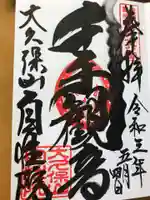 奉拝
令和三年
五月四日
千手観音
大久保山
自性院